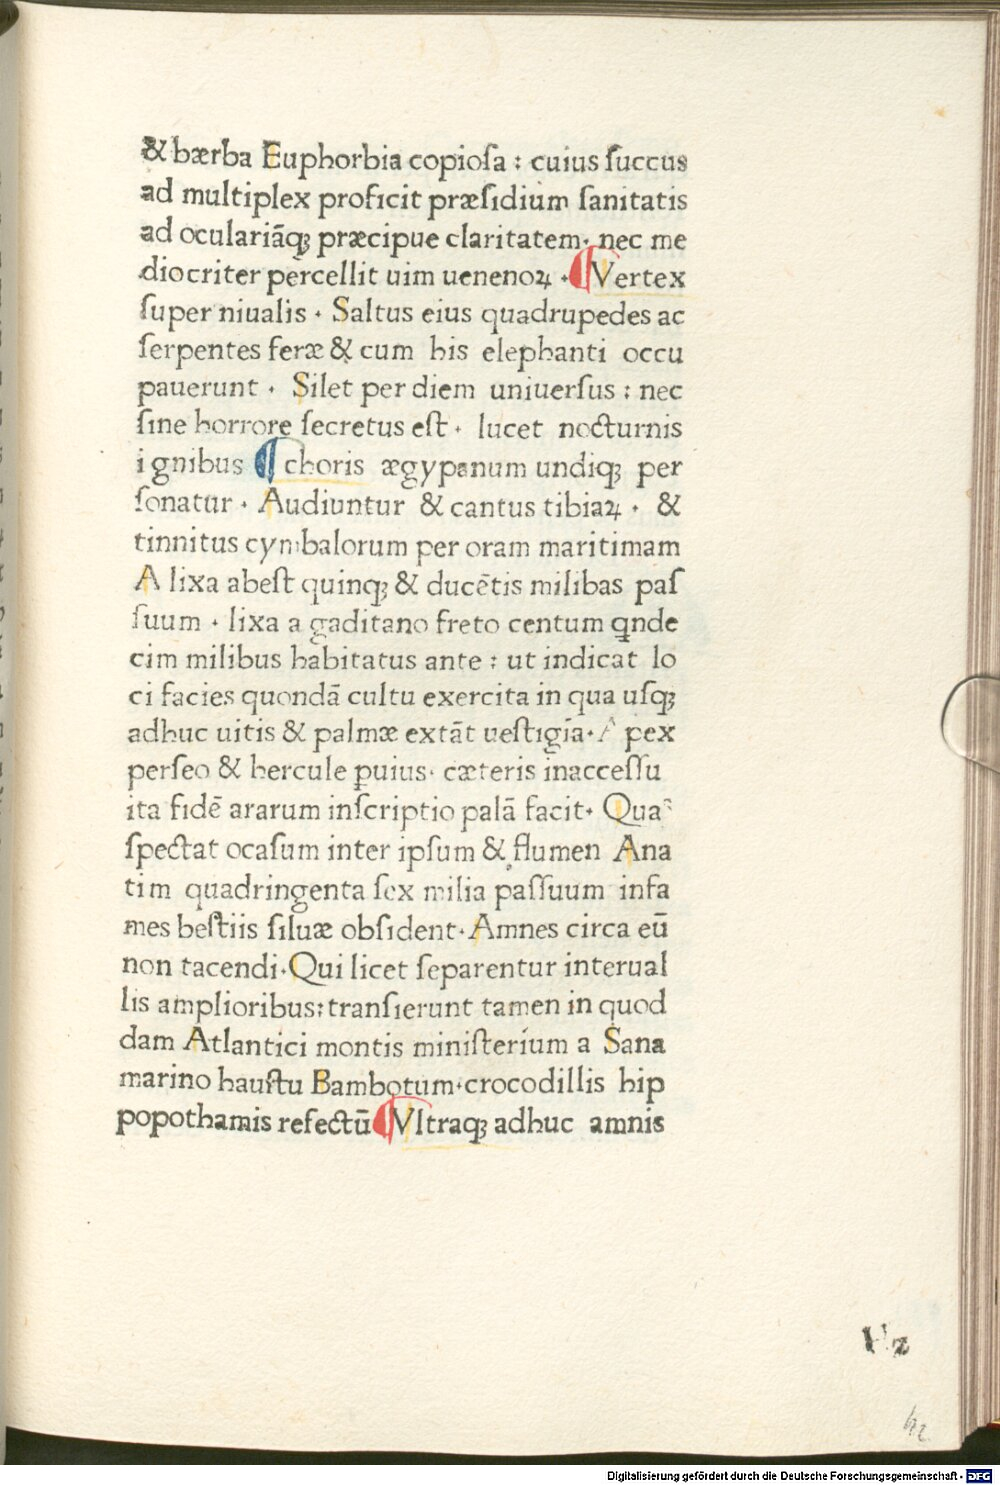 & bærba Euphorbia copioſa : cuius ſuccus
ad multiplex proficit præſidium ſanitatis
ad oculariãq; præcipue claritatem· nec me
diocriter percellit uim uenenoꝝ · ¶ Vertex
ſuper niualis · Saltus eius quadrupedes ac
ſerpentes feræ & cum his elephanti occu
pauerunt · Silet per diem uniuerſus : nec
ſine horrore ſecretus eſt · lucet nocturnis
ignibus ¶ choris ægypanum undiq; per
ſonatur · Audiuntur & cantus tibiaꝝ · &
tinnitus cymbalorum per oram maritimam
A lixa abeſt quinq; & ducẽtis milibas paſ
ſuum · lixa a gaditano freto centum qnde
cim milibus habitatus ante : ut indicat lo
ci facies quondã cultu exercita in qua uſq;
adhuc uitis & palmæ extãt ueſtigia· A pex
perſeo & hercule ꝑuius· cæteris inacceſſu
ita fidẽ ararum inſcriptio palã facit· Qua
ſpectat ocaſum inter ipſum & flumen Ana
tim quadringenta ſex milia paſſuum infa
mes beſtiis ſiluæ obſident· Amnes circa eũ
non tacendi· Qui licet ſeparentur interual
lis amplioribus: tranſierunt tamen in quod
dam Atlantici montis miniſterium a Sana
marino hauſtu Bambotum· crocodillis hip
popothamis refectũ ¶ Vltraq; adhuc amnis
42
Digitalisierung gefördert durch die Deutsche Forschungsgemeinschaft · DFG